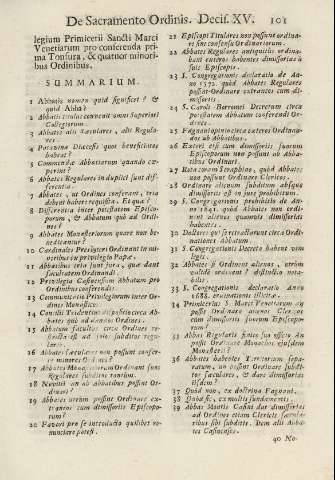 De Sacramento Ordinis. Decis. XV. 101
legium Primicerii Sancti Marci
Venetiarum pro conferenda pri-
ma Tonsura, & quatuor minori-
bus Ordinibus.
SUMMARIUM.
1 Abbatis nomen quid significet? &
quid Abba?
2 Abbatis titulus convenit omni Superiori
Collegiorum.
3 Abbates alii sæculares, alii Regula-
res.
4 Parænna Diœcesis quot beneficiatos
habeat?
5 Commendæ Abbatiarum quando cæ-
perint?
6 Abbates Regulares in duplici sunt diffe-
rentia.
7 Abbates, ut Ordines conferant, tria
debent habere requisita. Et quæ?
8 Differentia inter potestatem Episco-
porum, & Abbatum quò ad Ordi-
nes?
9 Abbates Monasteriorum quare non be-
nedicantur?
10 Cardinales Presbyteri Ordinant in mi-
noribus in privilegio Papæ.
11 Abbatibus tria sunt jura, quæ dant
facultatem Ordinandi.
12 Privilegia Cassinensium Abbatum pro
Ordinibus conferendis.
13 Communicatio Privilegiorum inter Or-
dines Monasticos.
14 Concilii Tridentini dispositio circa Ab-
bates quò ad eandem Ordines.
15 Abbatum facultas circa Ordines re-
stricta est ad solos subditos regu-
lares.
16 Abbates sæculares non possunt confer-
re minores Ordines?
17 Abbates Monasteriorum Ordinant suos
Regulares subditos tantùm.
18 Novitii an ab Abbatibus possint Or-
dinari?
19 Abbates utrum possint Ordinare ex-
traneos cum dimissoriis Episcopo-
rum?
20 Favori pro se introducto quilibet re-
nunciare potest.
21 Episcopi Titulares non possunt ordina-
re sine consensu Ordinariorum.
22 Abbates Regulares antiquitùs ordina-
bant exteros habentes dimissorias à
suis Episcopis.
23 S. Congregationis declaratio de An-
no 1572. quòd Abbates Regulares
possint Ordinare extraneos cum di-
missoriis.
24 S. Caroli Borromei Decretum circa
potestatem Abbatum conferendi Or-
dines.
25 Fagnani opinio circa exteros Ordinan-
dos ab Abbatibus.
26 Exteri etsi cum dimissoriis suorum
Episcoporum non possunt ab Abba-
tibus Ordinari.
27 Rota coram Seraphino, quòd Abbates
non possunt Ordinare Clericos.
28 Ordinare alienum subditum absque
dimissoriis est in jure prohibitum.
29 S. Congregationis prohibitio de An-
no 1641. quòd Abbates non ordi-
nent alienos quamvis dimissorias
habentes.
30 Doctores qui se retractarunt circa Ordi-
nationes Abbatum.
31 S. Congregationis Decreta habent vim
legis.
32 Abbates si Ordinent alienos, utrùm
validè ordinent? distinctio nota-
bilis.
33 S. Congregationis declaratio Anno
1688. ordinationis illicitæ.
34 Primicerius S. Marci Venetiarum an
possit Ordinare alienos Clericos
cum dimissoriis suorum Episcopo-
rum?
35 Abbas Regularis finito suo officio An
possit Ordinare Monachos ejusdem
Monasterii?
36 Abbates habentes Territorium sepa-
ratum, an possint Ordinare subdi-
tos sæculares, & dare dimissorias
eisdem?
37 Quid non, ex doctrina Fagnani.
38 Quòd sic, ex multis fundamentis.
39 Abbas Montis Casini dat dimissorias
ad Ordines etiam Clericis sæcula-
ribus sibi subditis. Item alii Abba-
tes Casinenses.
40 No-